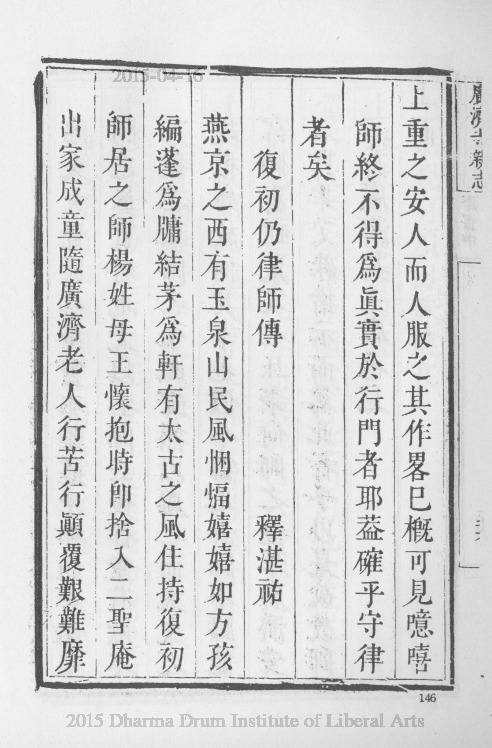 廣濟寺新志
上重之安人而人服之其作畧已槪可見噫嘻
師終不得爲眞實於行門者耶葢確乎守律
者矣
復初仍律師傳 釋湛祐
燕京之西有玉泉山民風悃愊嬉嬉如方孩
編蓬爲牗結茅爲軒有太古之風住持復初
師居之師楊姓母王懷抱時卽捨入二聖庵
出家成童隨廣濟老人行苦行顚覆艱難靡
146
2015-04-16
2015 Dharma Drum Institute of Liberal Arts